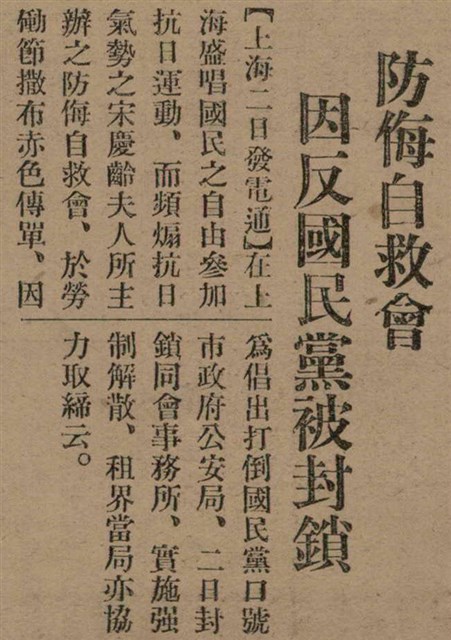 防侮自救會
因反國民黨被封鎖
【上海二日發電通】在上
海盛唱國民之自由參加
抗日運動、而頻煽抗日
氣勢之宋慶齡夫人所主
辦之防侮自救會、於勞
働節撒布赤色傳單、因
爲倡出打倒國民黨口號
市政府公安局、二日封
鎖同會事務所、實施强
制解散、租界當局亦協
力取締云。